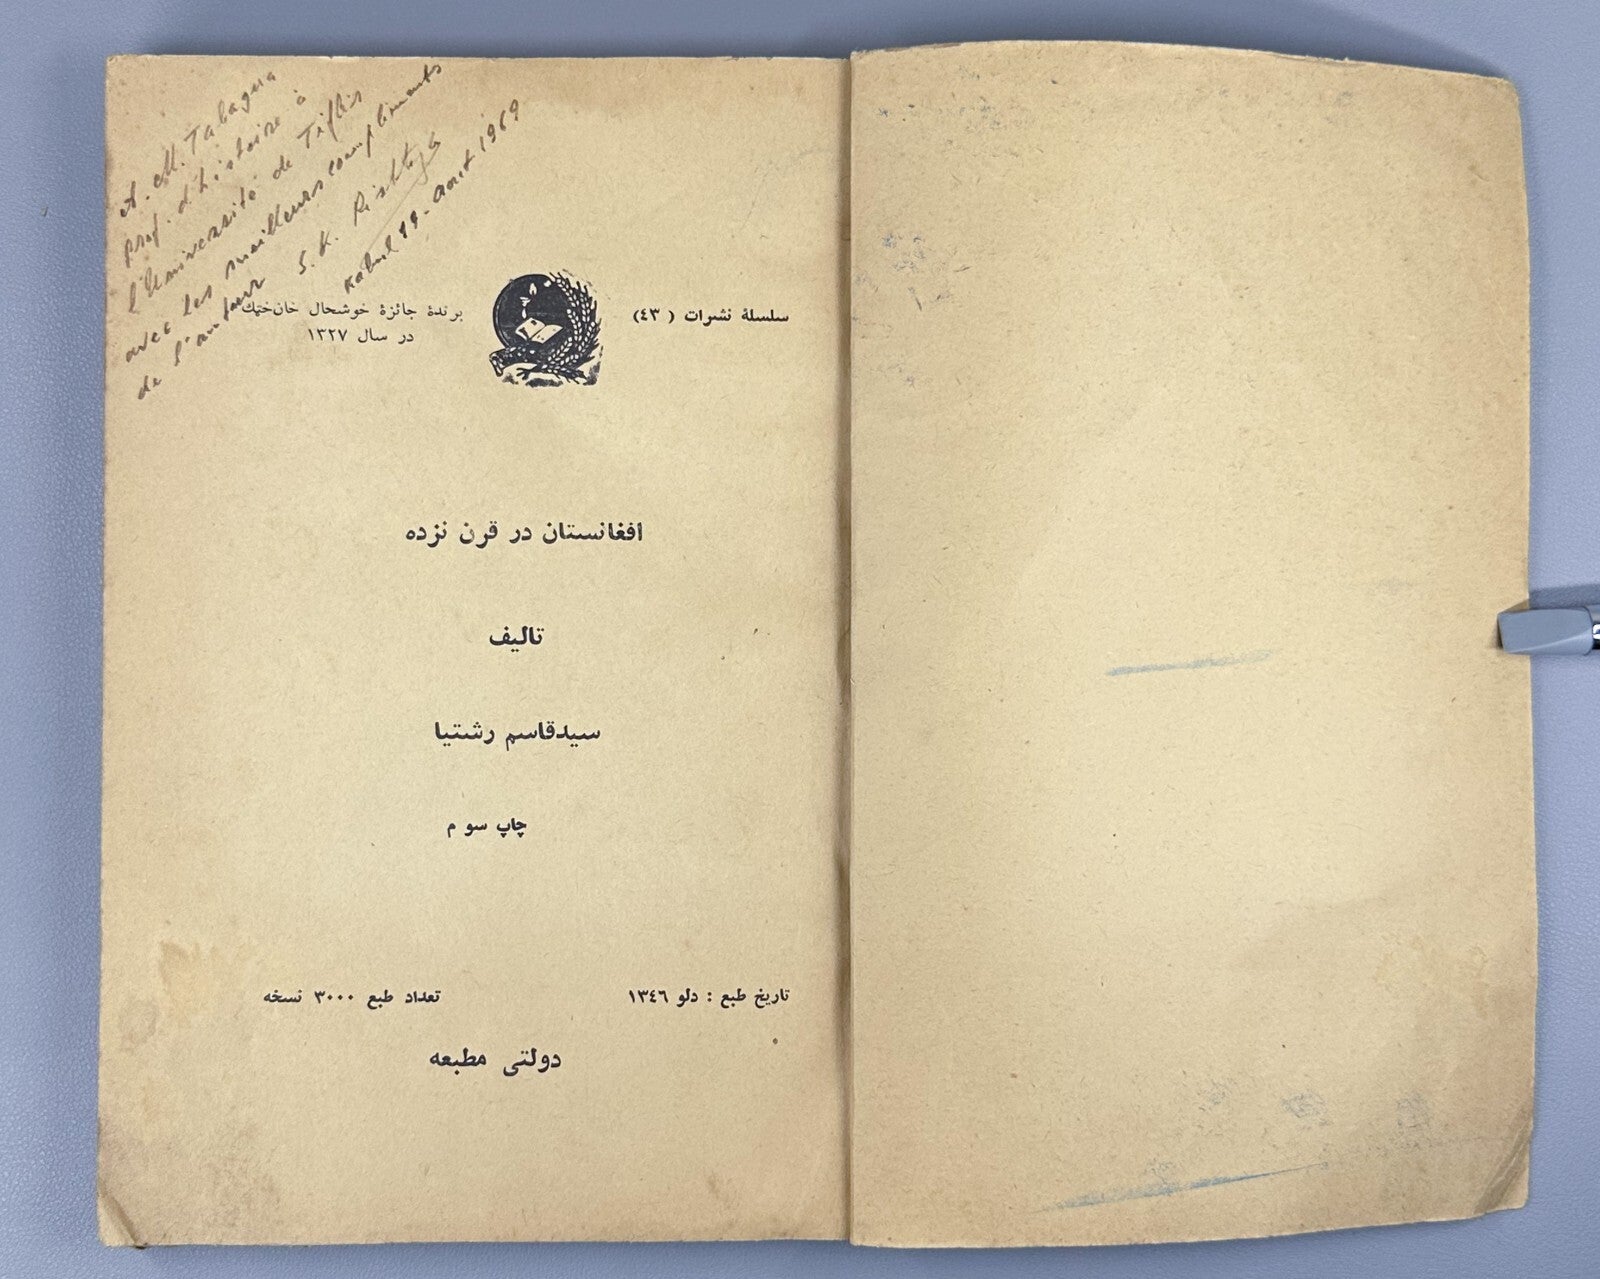 A. M. Tabagua
prof. d'histoire à
l'Université de Tiflis
avec les meilleurs compliments
de l'auteur S. K. Rishtya
Kabul 19. Août 1969
سلسلهٔ نشرات (٤٣)
برندهٔ جائزهٔ خوشحال خان ختک
در سال ۱۳۲۷
افغانستان در قرن نزده
تالیف
سیدقاسم رشتیا
چاپ سوم
تاریخ طبع : دلو ۱۳٤٦
تعداد طبع ۳۰۰۰ نسخه
دولتی مطبعه